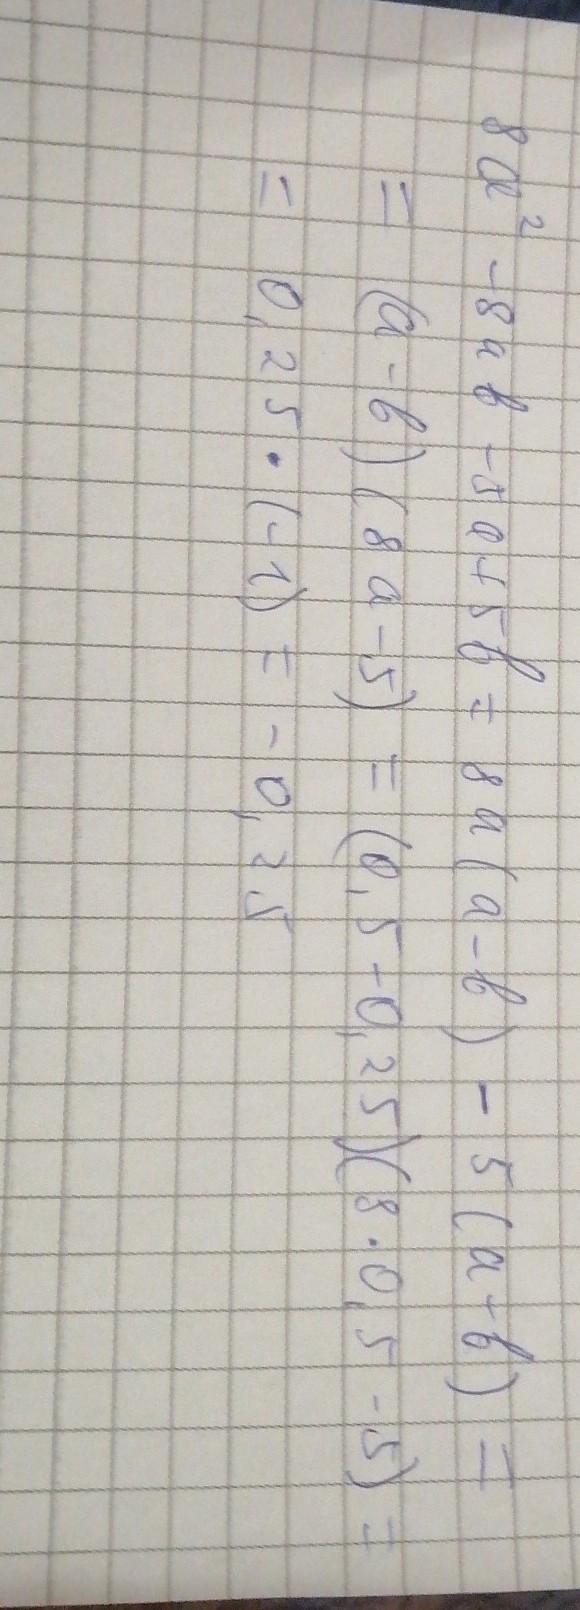 8a² - 8ab - 5a + 5b = 8a(a - b) - 5(a - b) =
= (a - b)(8a - 5) = (0,5 - 0,25)(8 · 0,5 - 5) =
= 0,25 · (-1) = -0,25